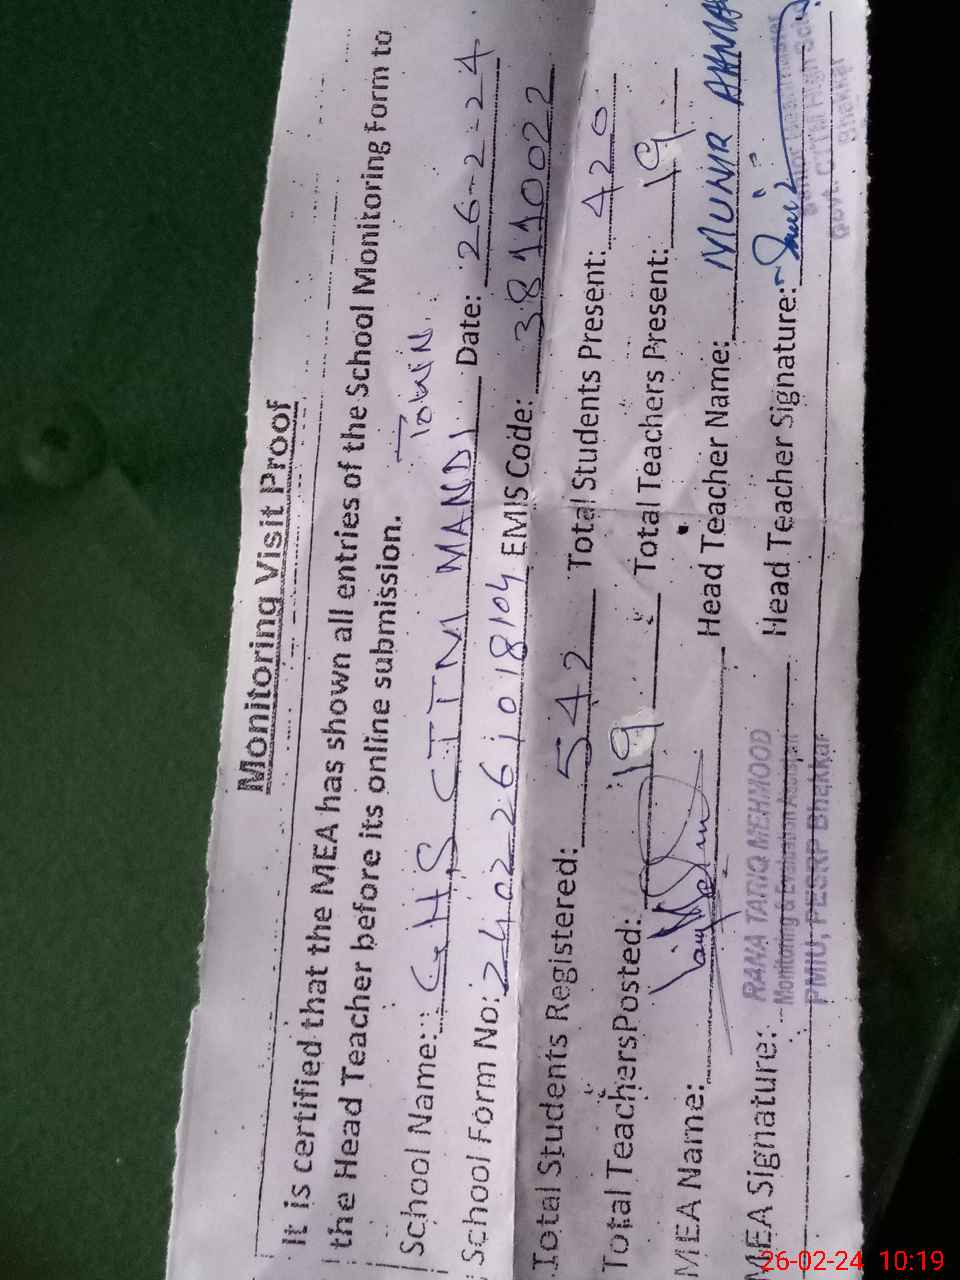 Monitoring Visit Proof
It is certified that the MEA has shown all entries of the School Monitoring Form to
the Head Teacher before its online submission.
Town.
School Name: G.H.S CTTM MANDI Date: 26-2-24
School Form No: 2402261018104 EMIS Code: 38110022
Total Students Registered: 542 Total Students Present: 420
Total TeachersPosted: 19 Total Teachers Present: 19
MEA Name: Head Teacher Name: MUNIR AHMA
MEA Signature: Head Teacher Signature:
RANA TARIQ MEHMOOD
Monitoring & Evaluation Assistant
PMIU, PESRP Bhakkar
Govt. CTTM High
Bhakkar
26-02-24 10:19